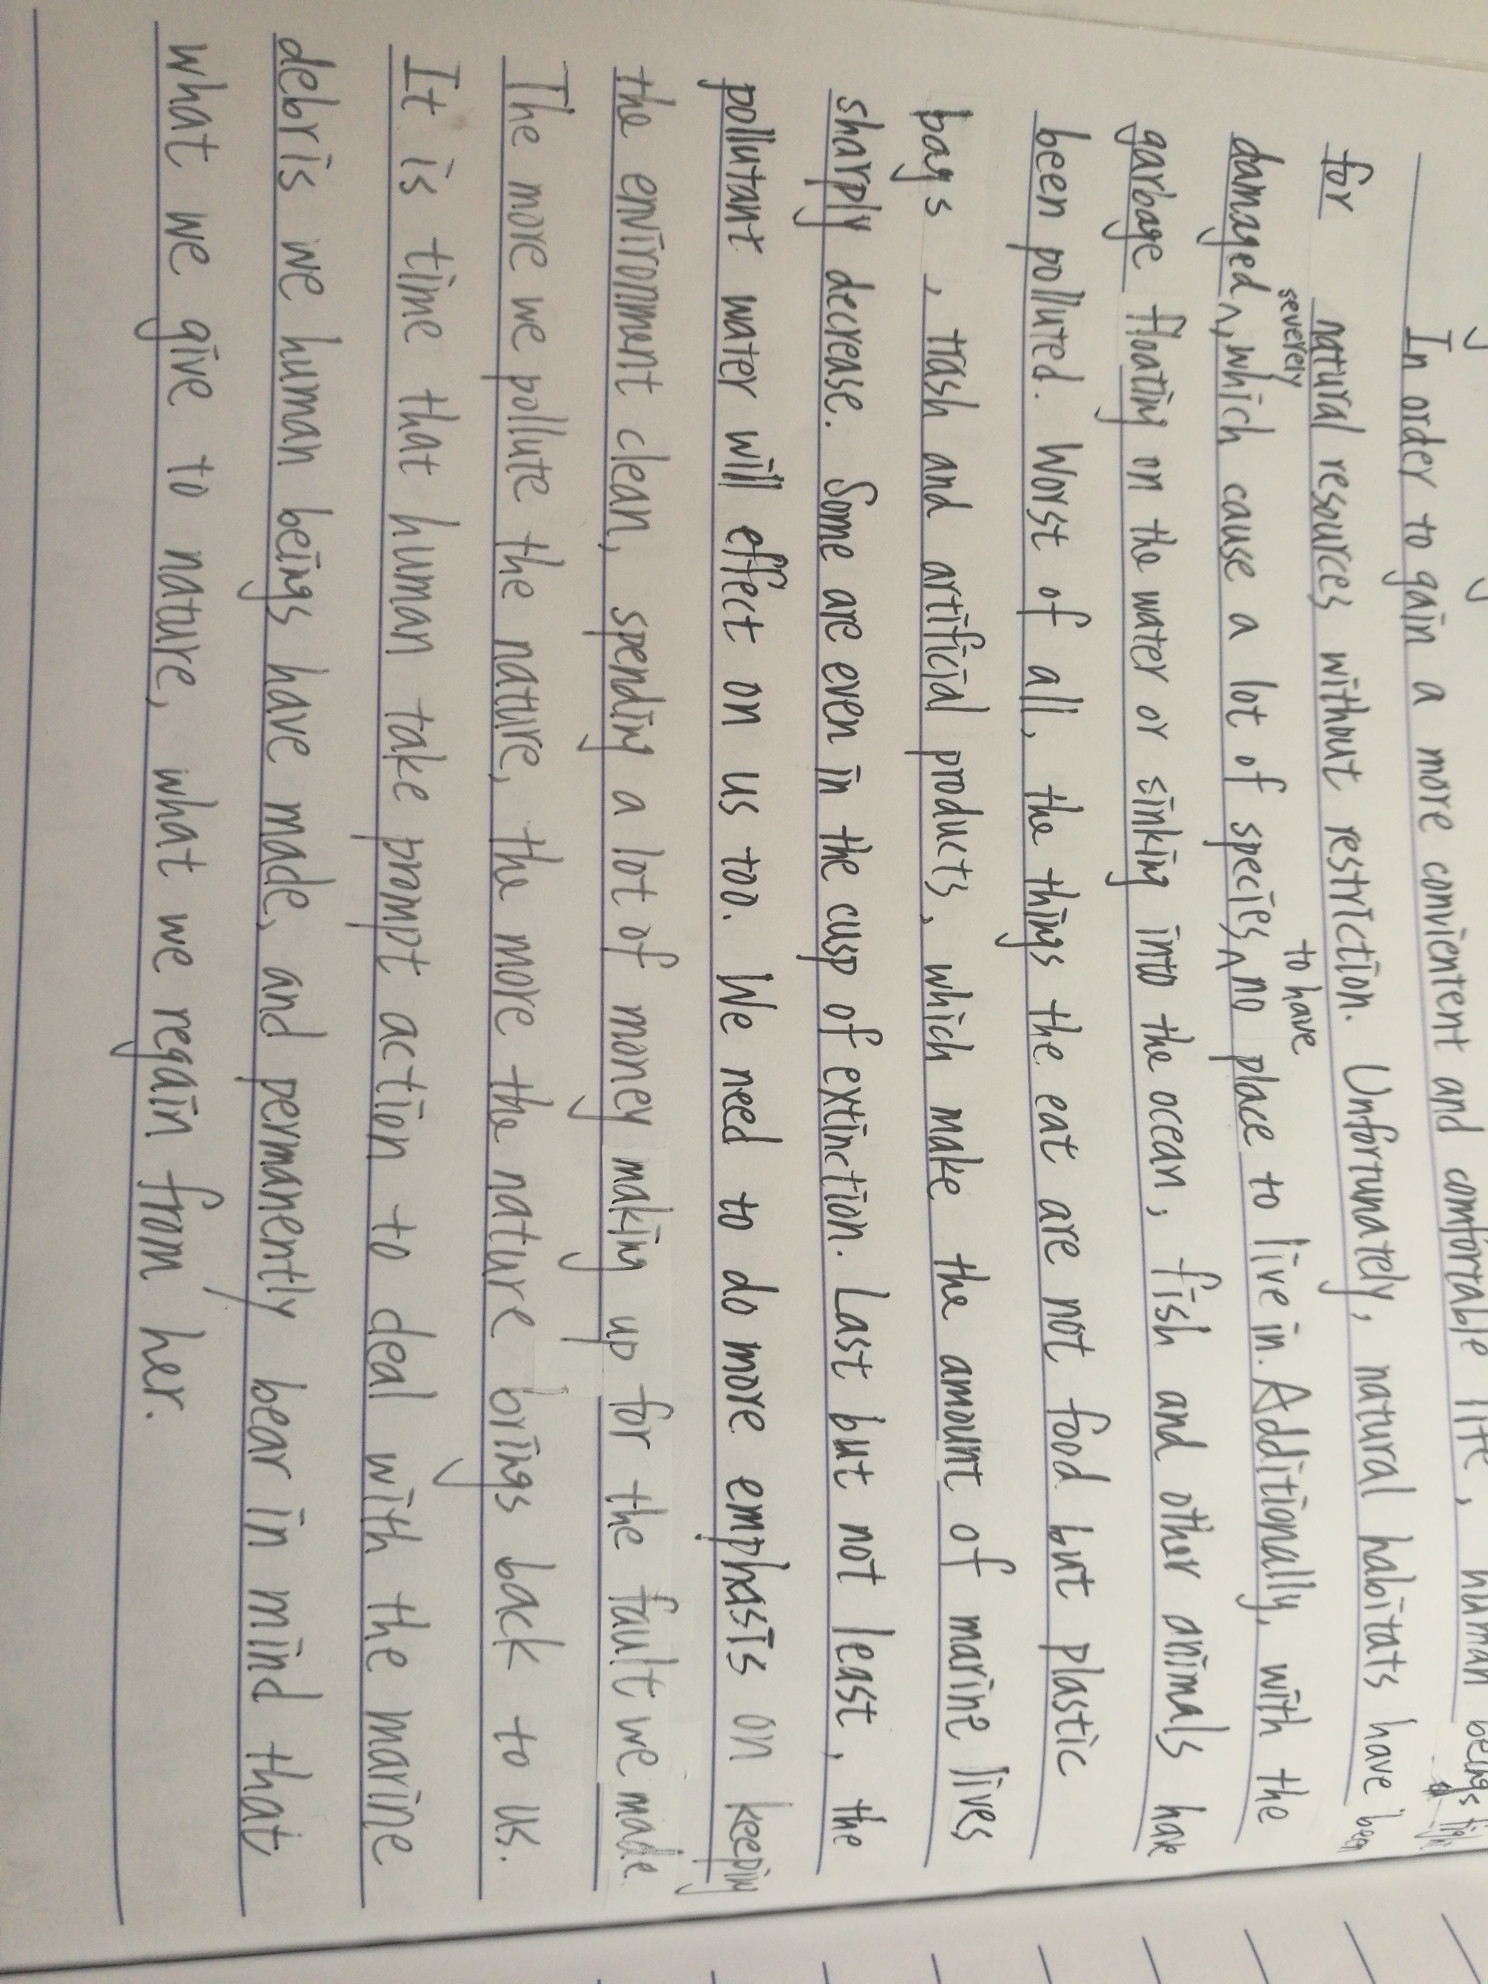 In order to gain a more convientent and comfortable life, human beings fight
for natural resources without restriction. Unfortunately, natural habitats have been
severely to have
damaged ^, which cause a lot of species ^ no place to live in. Additionally, with the
garbage floating on the water or sinking into the ocean, fish and other animals have
been polluted. Worst of all, the things the eat are not food but plastic
bags, trash and artificial products, which make the amount of marine lives
sharply decrease. Some are even in the cusp of extinction. Last but not least, the
pollutant water will effect on us too. We need to do more emphasis on keeping
the environment clean, spending a lot of money making up for the fault we made.
The more we pollute the nature, the more the nature brings back to us.
It is time that human take prompt action to deal with the marine
debris we human beings have made, and permanently bear in mind that
what we give to nature, what we regain from her.